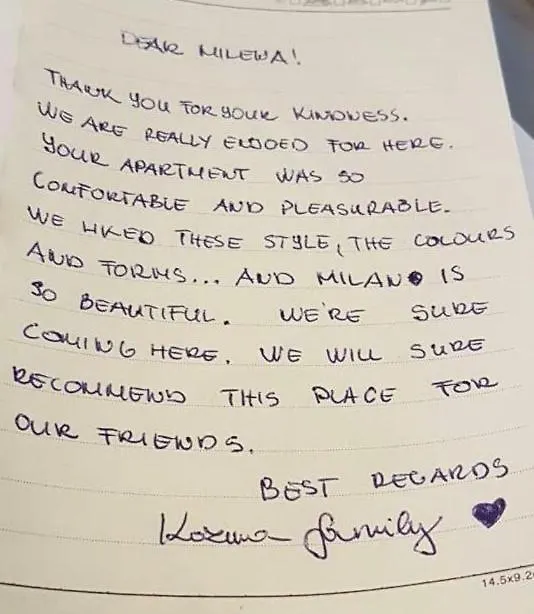 DEAR MILENA!
THANK YOU FOR YOUR KINDNESS.
WE ARE REALLY ENJOED FOR HERE.
YOUR APARTMENT WAS SO
COMFORTABLE AND PLEASURABLE.
WE LIKED THESE STYLE, THE COLOURS
AND FORMS... AND MILANO IS
SO BEAUTIFUL. WE'RE SURE
COMING HERE. WE WILL SURE
RECOMMEND THIS PLACE FOR
OUR FRIENDS.
BEST REGARDS
family